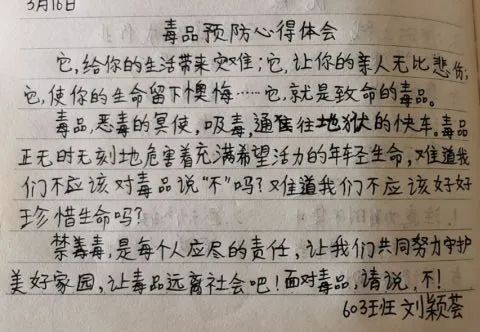 3月16日
毒品预防心得体会
它,给你的生活带来灾难;它,让你的亲人无比悲伤;
它,使你的生命留下懊悔……它,就是致命的毒品。
毒品,恶毒的冥使,吸毒,通往往地狱的快车。毒品
正无时无刻地危害着充满希望活力的年轻生命,难道我
们不应该对毒品说“不”吗?难道我们不应该好好
珍惜生命吗?
禁毒,是每个人应尽的责任,让我们共同努力守护
美好家园,让毒品远离社会吧!面对毒品,请说,不!
603班 刘颖荟